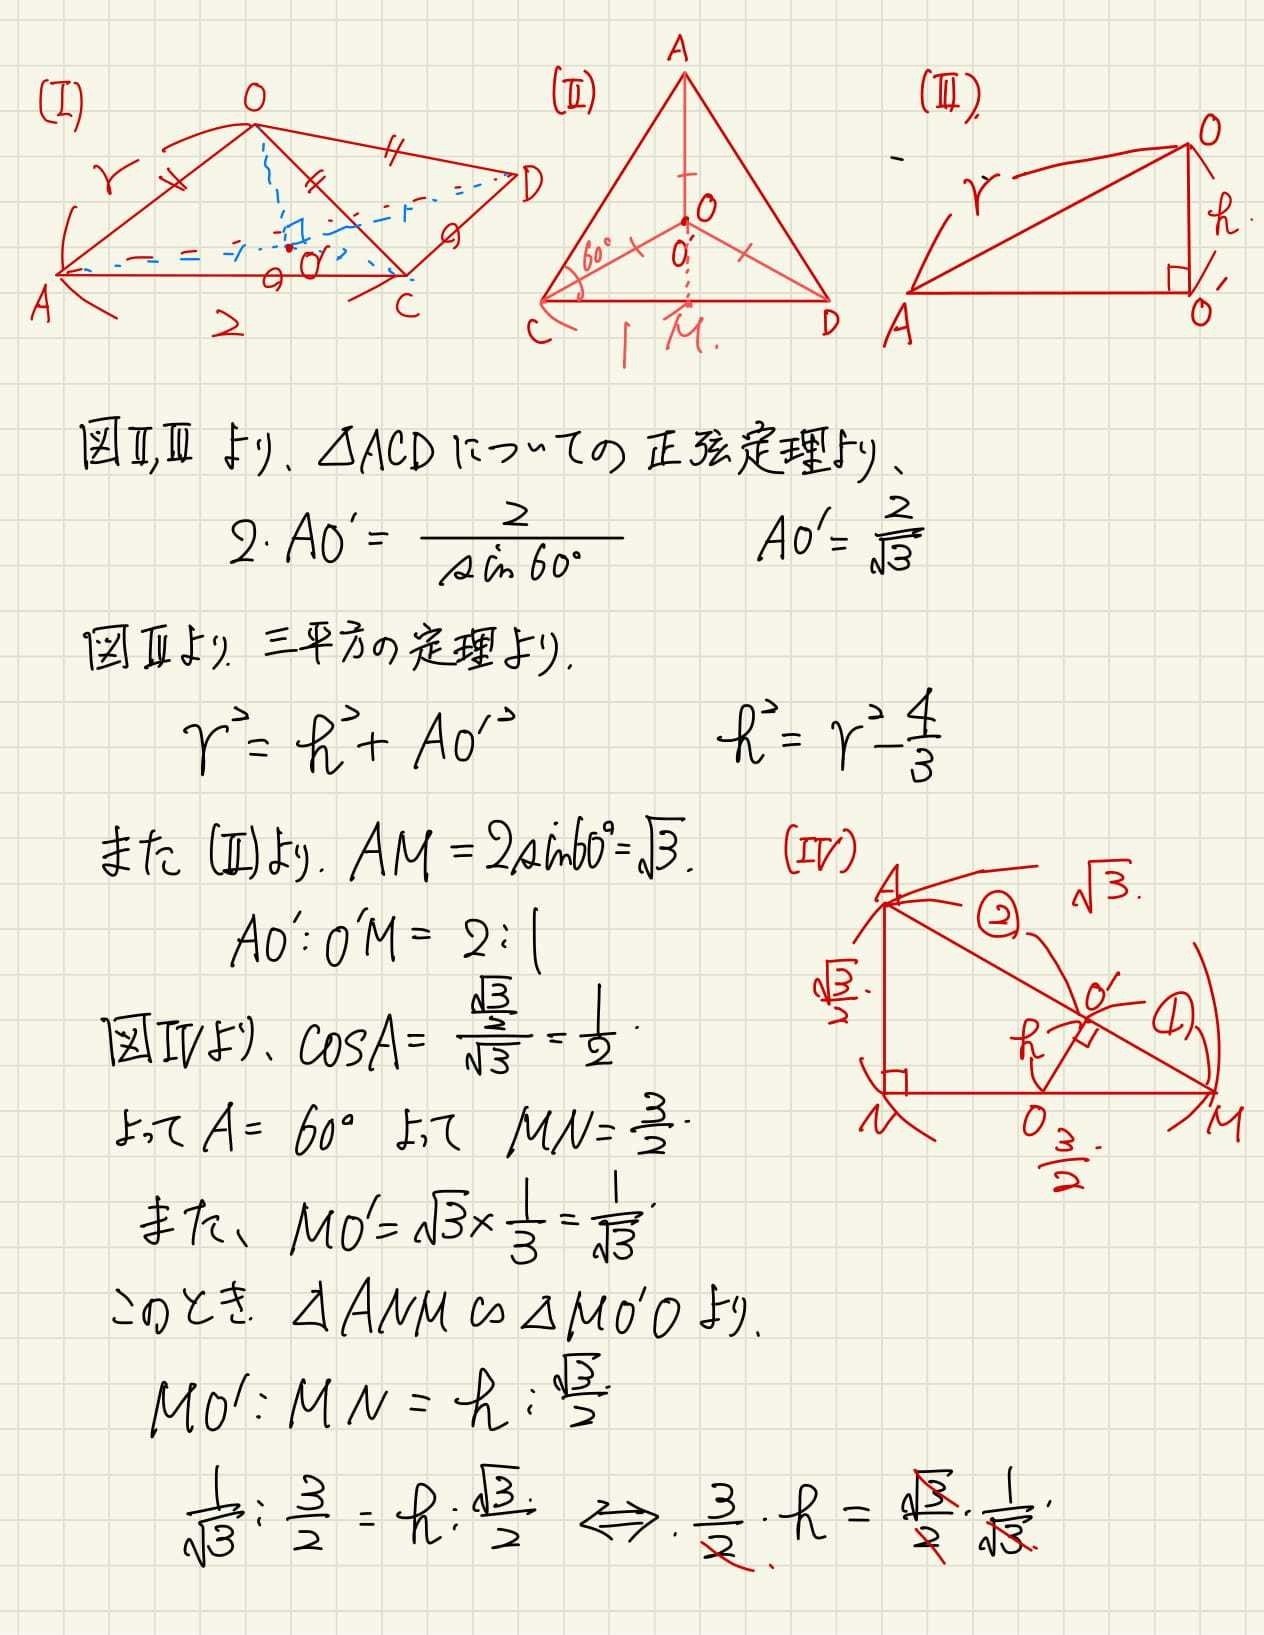 (I) O r D A O' C 2
(II) A O O' 60° C 1 M. D
(III) O r h. A O'
図II,III より、△ACDについての正弦定理より、
2・AO' = 2/sin60° AO' = 2/√3
図IIIより. 三平方の定理より.
r² = h² + AO'² h² = r² - 4/3
また (II)より. AM = 2sin60° = √3.
(IV) A √3. ② √3/2. O' ① h N O M 3/2.
AO' : O'M = 2 : 1
図IVより、 cosA = (√3/2)/√3 = 1/2.
よって A = 60° よって MN = 3/2.
また、 MO' = √3 × 1/3 = 1/√3.
このとき. △ANM ∽ △MO'O より.
MO' : MN = h : √3/2.
1/√3 : 3/2 = h : √3/2 ⇔ 3/2・h = √3/2・1/√3.